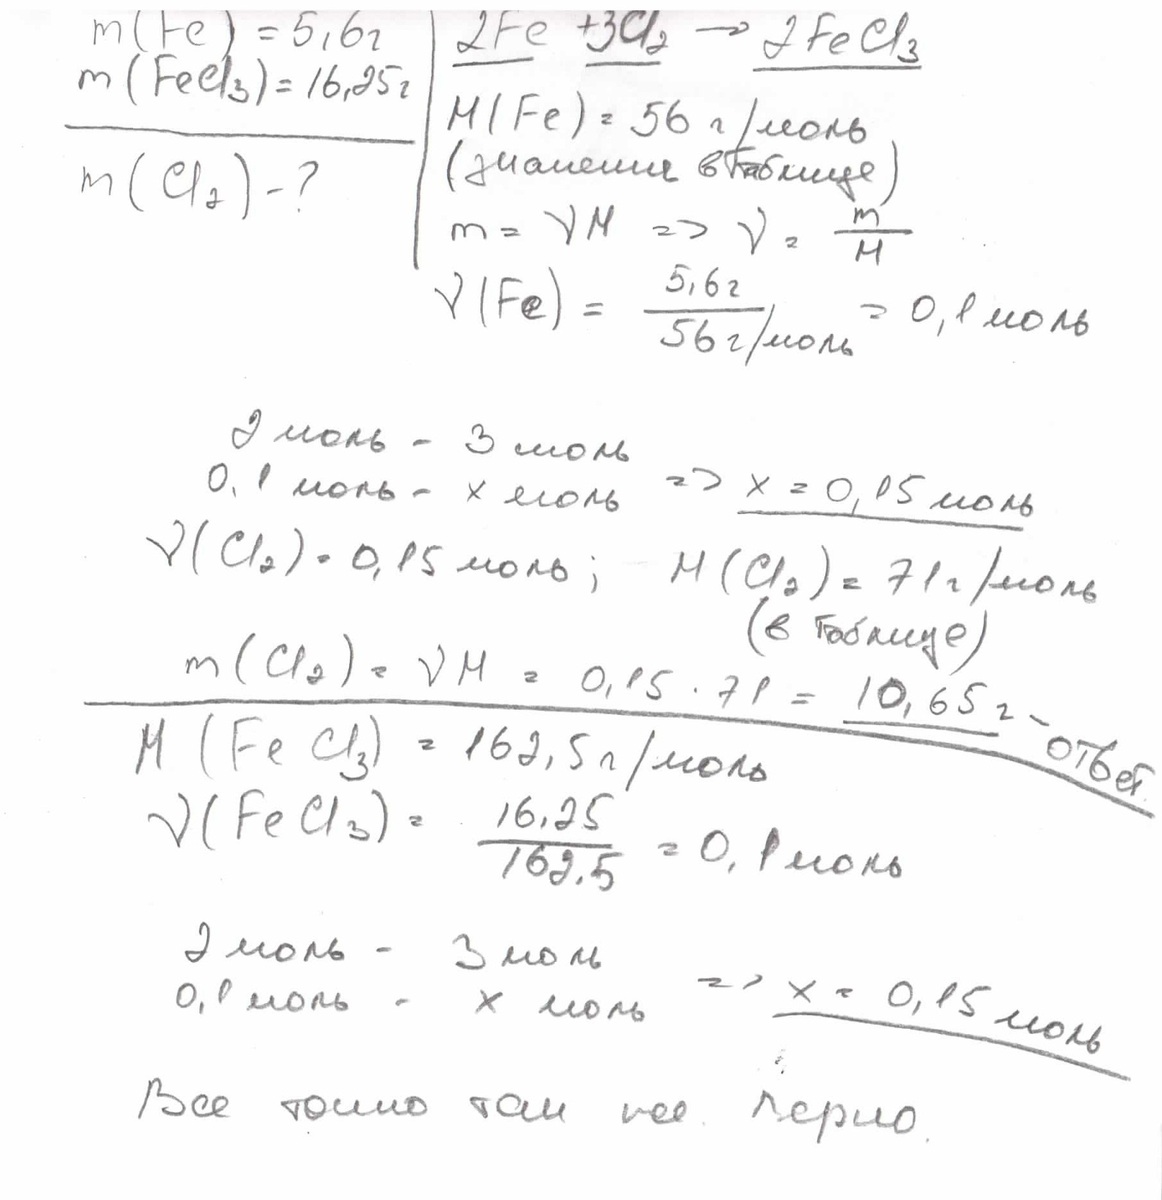 m(Fe) = 5,6г
m(FeCl₃) = 16,25г
m(Cl₂) - ?
2Fe + 3Cl₂ → 2FeCl₃
M(Fe) = 56 г/моль
(значения в таблице)
m = νM => ν = m/M
ν(Fe) = 5,6г / 56г/моль = 0,1 моль
2 моль - 3 моль
0,1 моль - x моль => x = 0,15 моль
ν(Cl₂) = 0,15 моль; M(Cl₂) = 71г/моль
(в таблице)
m(Cl₂) = νM = 0,15 · 71 = 10,65г - ответ.
M(FeCl₃) = 162,5г/моль
ν(FeCl₃) = 16,25 / 162,5 = 0,1 моль
2 моль - 3 моль
0,1 моль - x моль => x = 0,15 моль
Все точно так же. Верно.